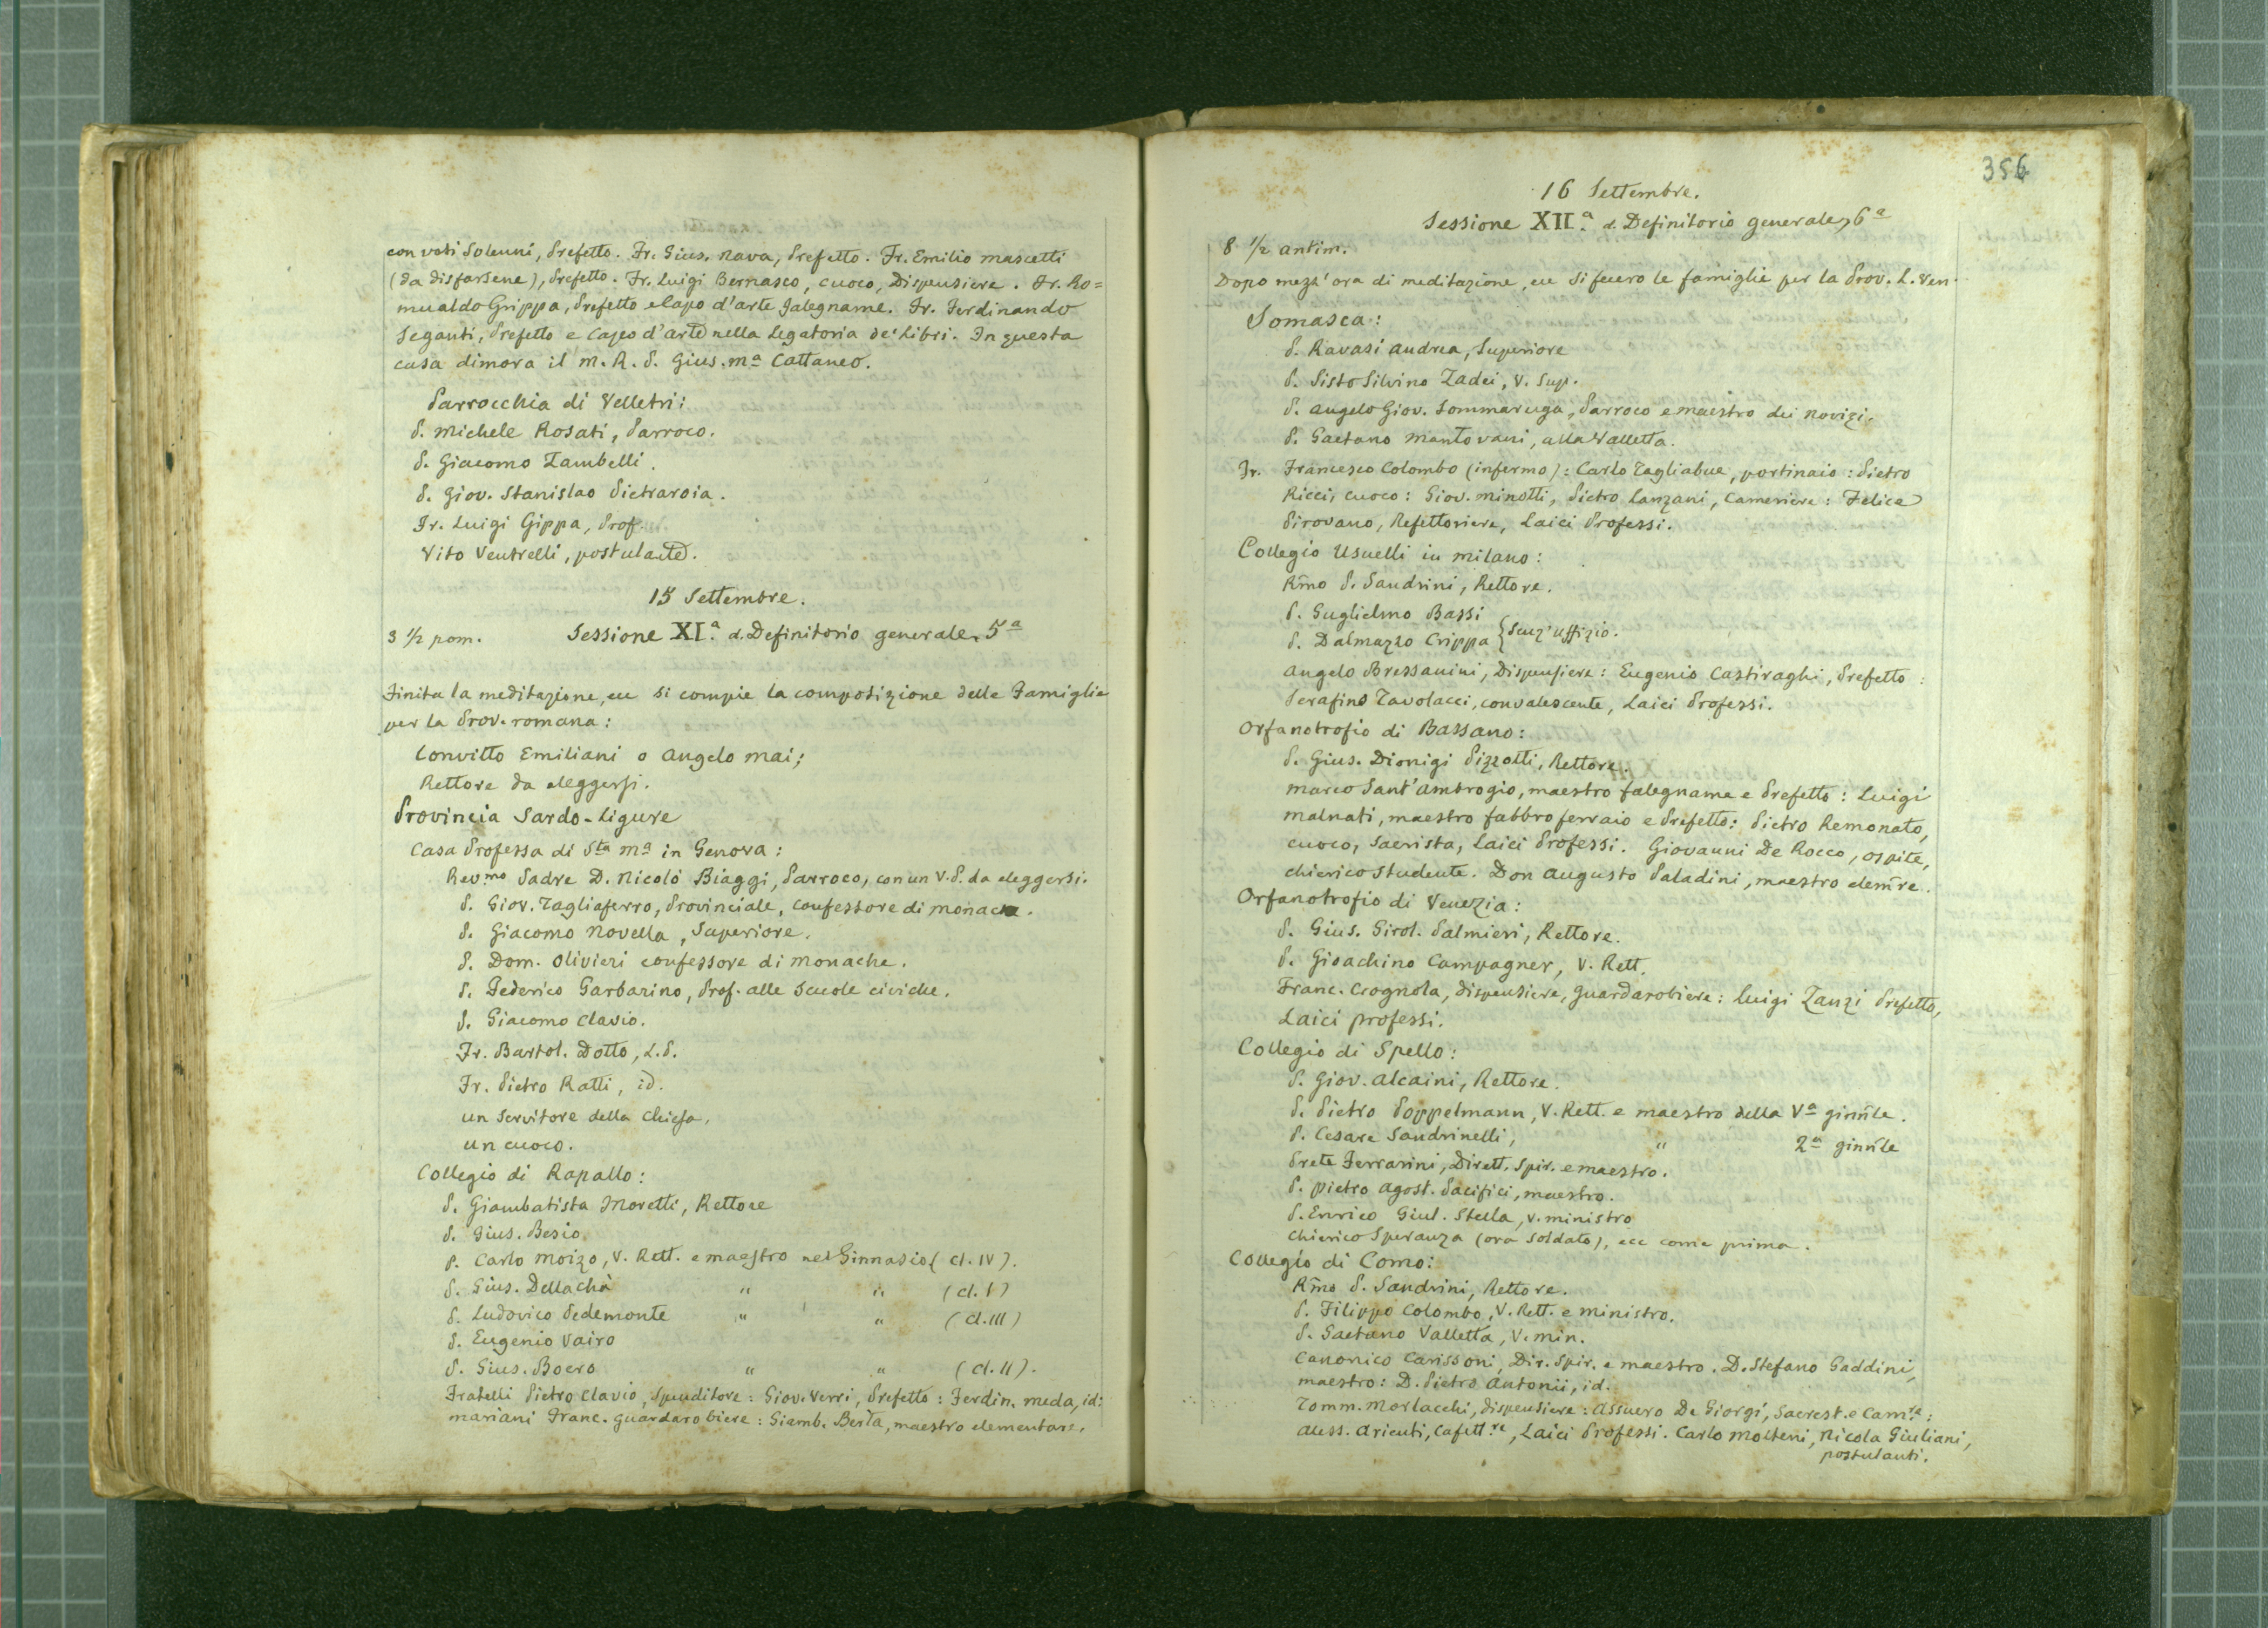 con voti Solenni, Prefetto. Fr. Gius. Rava, Prefetto. Fr. Emilio Mascetti
(da disfarsene), Prefetto. Fr. Luigi Bernasco, cuoco, Dispensiere. Fr. Ro=
mualdo Grippa, Prefetto e Capo d'arte Falegname. Fr. Ferdinando
Seganti, Prefetto e Capo d'arte nella Legatoria de' Libri. In questa
casa dimora il M. R. P. Gius. Mª Cattaneo.
Parrocchia di Velletri:
P. Michele Rosati, Parroco.
P. Giacomo Zambelli.
P. Giov. Stanislao Pietraroia.
Fr. Luigi Gippa, Prof.
Vito Ventrelli, postulante.
15 Settembre.
3 1/2 pom. Sessione XI.ª d. Definitorio generale, 5ª
Finita la meditazione, ecc si compie la composizione delle Famiglie
per la Prov. romana:
Convitto Emiliani o Angelo Mai;
Rettore da eleggersi.
Provincia Sardo-Ligure
Casa Professa di Sta Mª in Genova:
Rev.mo Padre D. Nicolò Biaggi, Parroco, con un V.P. da eleggersi.
P. Giov. Tagliaferro, Provinciale, confessore di monache.
P. Giacomo Novella, Superiore.
P. Dom. Olivieri confessore di monache.
P. Federico Garbarino, Prof. alle Scuole civiche.
P. Giacomo Clavio.
Fr. Bartol. Dotto, L.P.
Fr. Pietro Ratti, id.
un Servitore della Chiesa.
un cuoco.
Collegio di Rapallo:
P. Giambatista Moretti, Rettore
P. Gius. Besio
P. Carlo Moizo, V. Rett. e maestro nel Ginnasio (cl. IV).
P. Gius. Dellachà " " (cl. I)
P. Ludovico Pedemonte " " (cl. III)
P. Eugenio Vairo
P. Gius. Boero " " (cl. II).
Fratelli Pietro Clavio, Spenditore: Giov. Verri, Prefetto: Ferdin. Meda, id:
Mariani Franc. guardarobiere: Giamb. Berta, maestro elementare.
356
16 Settembre.
Sessione XII.ª d. Definitorio generale, 6ª
8 1/2 antim.
Dopo mezz'ora di meditazione, ecc si fecero le famiglie per la Prov. L. Ven.
Somasca:
P. Ravasi Andrea, Superiore
P. Sisto Silvino Zadei, V. Sup.
P. Angelo Giov. Sommaruga, Parroco e maestro dei novizi.
P. Gaetano Mantovani, alla Valletta.
Fr. Francesco Colombo (infermo): Carlo Tagliabue, portinaio: Pietro
Ricci, cuoco: Giov. Minotti, Pietro Lanzani, Cameriere: Felice
Pirovano, Refettoriere, Laici Professi.
Collegio Usuelli in Milano:
Rmo P. Sandrini, Rettore.
P. Guglielmo Bassi
P. Dalmazzo Crippa } Senz'uffizio.
Angelo Bressanini, Dispensiere: Eugenio Castiraghi, Prefetto:
Serafino Tavolacci, convalescente, Laici Professi.
Orfanotrofio di Bassano:
P. Gius. Dionigi Pizzotti, Rettore.
Marco Sant'Ambrogio, maestro falegname e Prefetto: Luigi
Malnati, maestro fabbro ferraio e Prefetto: Pietro Remonato,
cuoco, Sacrista, Laici Professi. Giovanni De Rocco, ospite,
chierico studente. Don Augusto Paladini, maestro elemre.
Orfanotrofio di Venezia:
P. Gius. Girol. Palmieri, Rettore.
P. Gioachino Campagner, V. Rett.
Franc. Crognola, dispensiere, guardarobiere: Luigi Zanzi Prefetto,
Laici professi.
Collegio di Spello:
P. Giov. Alcaini, Rettore.
P. Pietro Poppelmann, V. Rett. e maestro della Vª ginnle.
P. Cesare Sandrinelli, " 2ª ginnle
Prete Ferrarini, Dirett. Spir. e maestro.
P. Pietro Agost. Pacifici, maestro.
P. Enrico Giul. Stella, V. ministro
Chierico Speranza (ora soldato), ecc come prima.
Collegio di Como:
Rmo P. Sandrini, Rettore.
P. Filippo Colombo, V. Rett. e ministro.
P. Gaetano Valletta, V. min.
Canonico Carissoni, Dir. Spir. e maestro. D. Stefano Gaddini,
maestro: D. Pietro Antonii, id.
Tomm. Morlacchi, dispensiere: Assuero De Giorgi, Sacrest. e Cam.re:
Aless. Arienti, Cafett.re, Laici Professi. Carlo Molteni, Nicola Giuliani,
postulanti.